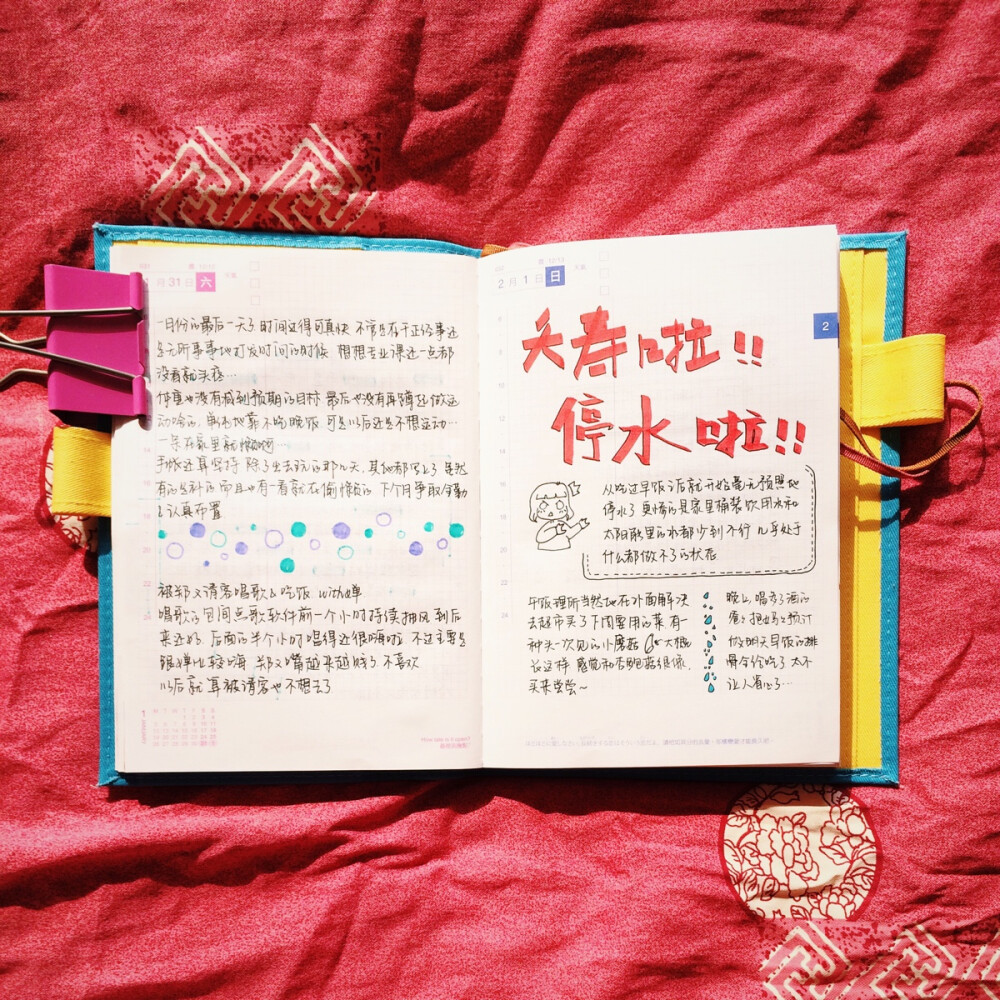 月 31 日 六
一月份的最后一天了 时间过得可真快 不管是有干正经事还
是无所事事地打发时间的时候 想想专业课还一点都
没看就头疼…
体重也没有减到预期的目标 最后也没有再蹲还做运
动啥的, 单纯地靠不吃晚饭 可是以后还是不想运动…
一呆在家里就懒啊…
手帐还算坚持 除了出去玩的那几天, 其他都写上了 虽然
有的是补的 而且也有一看就在偷懒的 下个月争取全勤
&认真布置
被郑又请客唱歌&吃饭 with婵
唱歌的包间点歌软件前一个小时持续抽风 到后
来还好 后面的半个小时唱得还很嗨啦 不过主要是
跟婵比较嗨 郑又嘴越来越贱了 不喜欢
以后就算被请客也不想去了
2 月 1 日 日
2
夭寿啦!!
停水啦!!
从吃过早饭之后就开始毫无预照地
停水了 更惨的是家里桶装饮用水和
太阳能里的水都少到不行 几乎处于
什么都做不了的状态
午饭理所当然地在外面解决
去超市买了下周要用的菜 有
种头一次见的小蘑菇 大概
长这样 感觉和杏鲍菇很像
买来尝尝~
晚上, 喝多了酒的
爸爸把妈妈预计
做明天早饭的排
骨给吃了 太不
让人省心了…